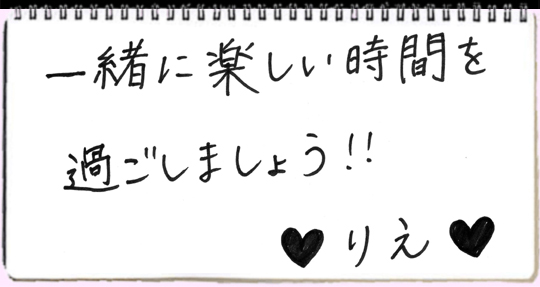 一緒に楽しい時間を
過ごしましょう!!
♥りえ♥